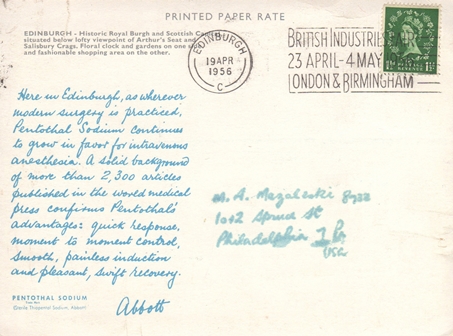 PRINTED PAPER RATE
EDINBURGH - Historic Royal Burgh and Scottish
situated below lofty viewpoint of Arthur's Seat and
Salisbury Crags. Floral clock and gardens on one
and fashionable shopping area on the other.
EDINBURGH
19 APR
1956
C
BRITISH INDUSTRIES
23 APRIL-4 MAY
LONDON & BIRMINGHAM
Here in Edinburgh, as wherever
modern surgery is practiced,
Pentothal Sodium continues
to grow in favor for intravenous
anesthesia. A solid background
of more than 2,300 articles
published in the world medical
press confirms Pentothal's
advantages: quick response,
moment to moment control,
smooth, painless induction
and pleasant, swift recovery.
Abbott
PENTOTHAL SODIUM
Thiopental Sodium, Abbott)
M. A.
St
Philadelphia
USA